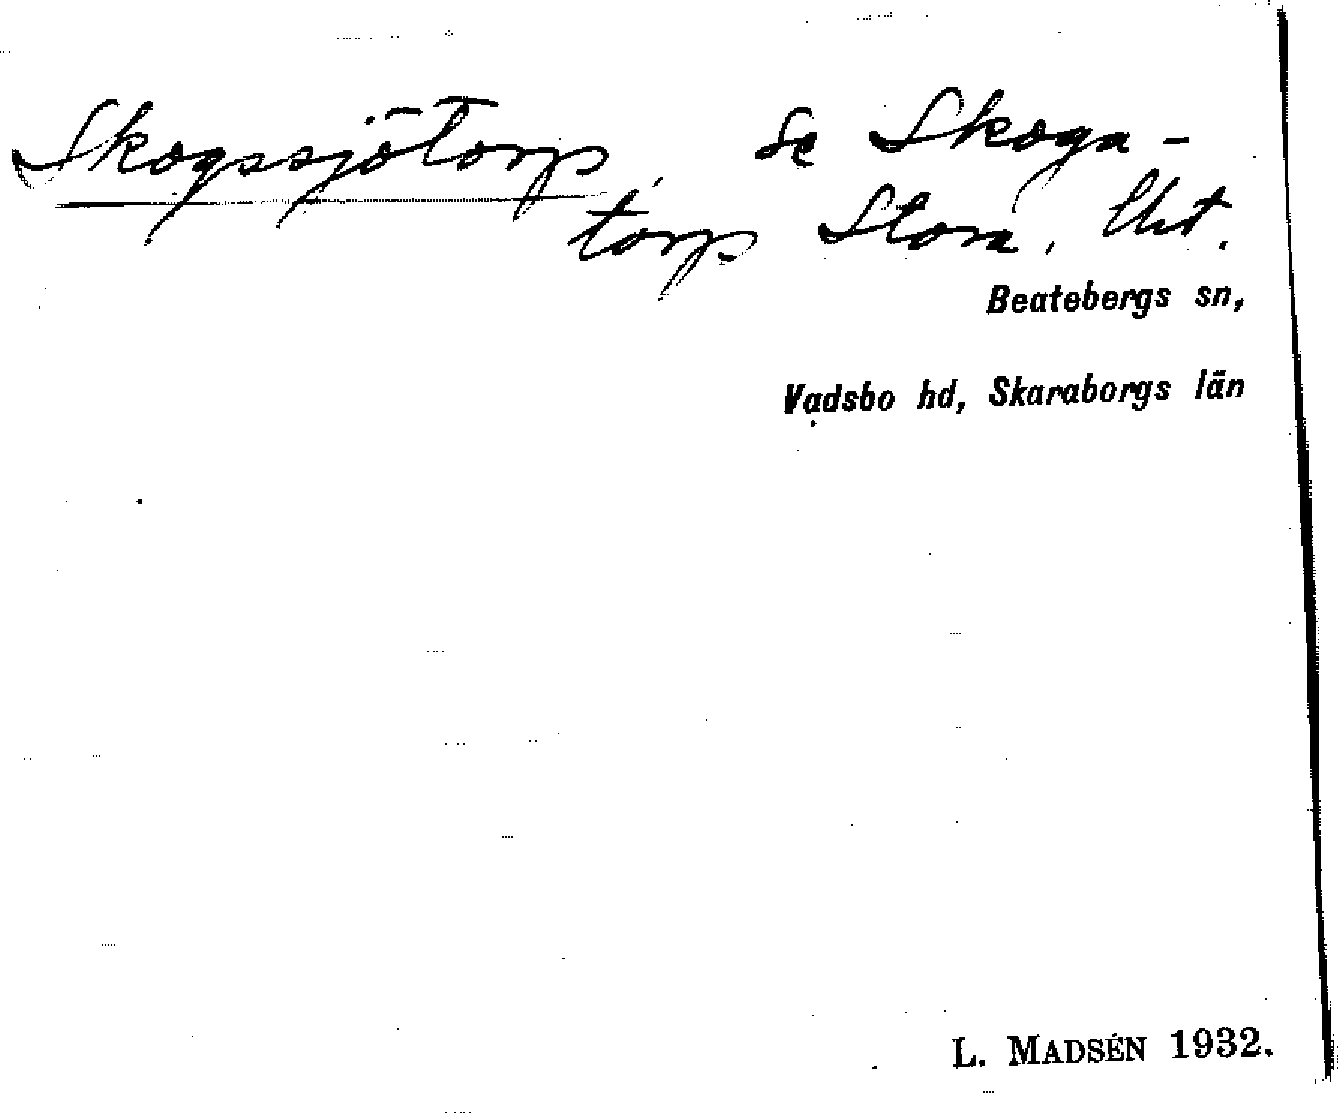 Skogssjötorp, Se Skoga-
torp Stora,
Beatebergs sn,
Vadsbo hd, Skaraborgs län
L. MADSÉN 1932.